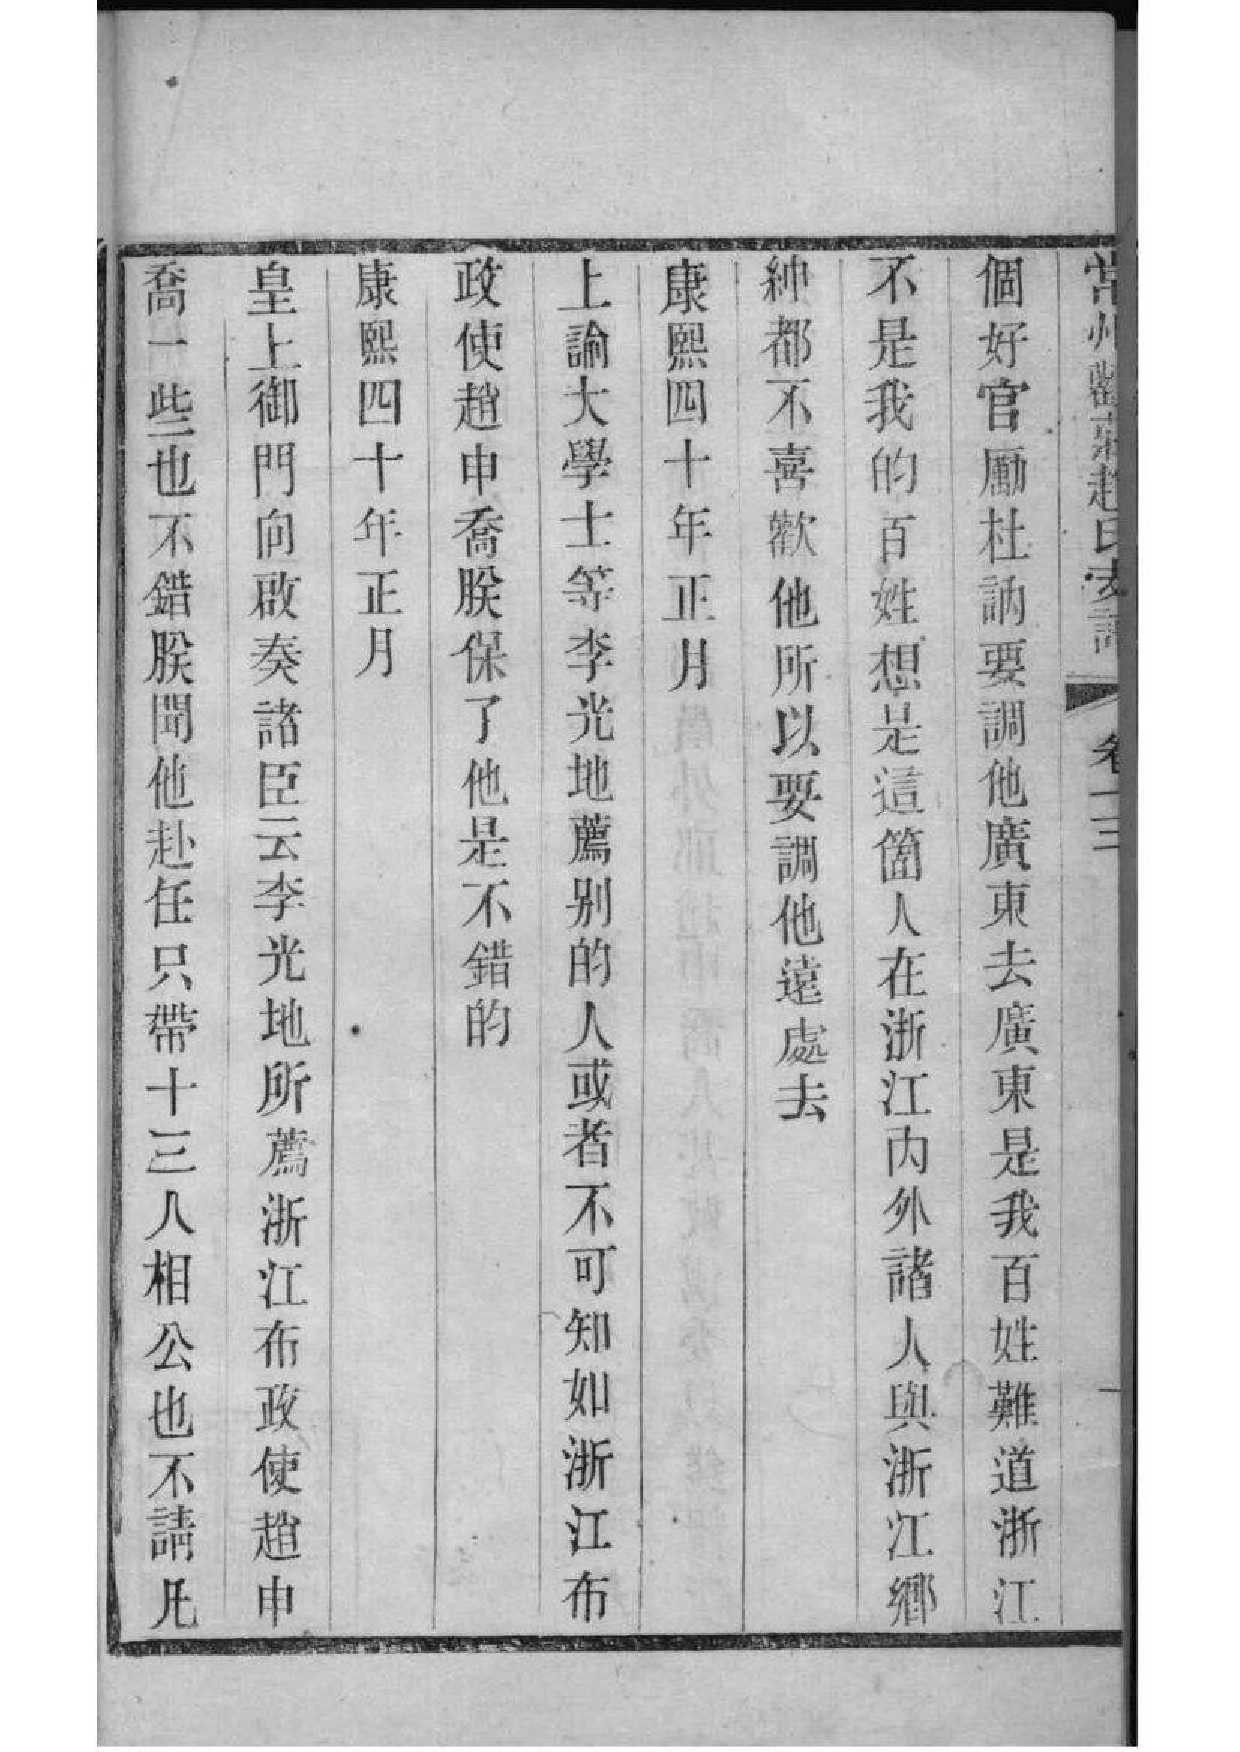 常州觀莊趙氏支譜 卷十三
個好官勵杜訥要調他廣東去廣東是我百姓難道浙江
不是我的百姓想是這箇人在浙江內外諸人與浙江鄉
紳都不喜歡他所以要調他遠處去
康熙四十年正月
上諭大學士等李光地薦別的人或者不可知如浙江布
政使趙申喬朕保了他是不錯的
康熙四十年正月
皇上御門向啟奏諸臣云李光地所薦浙江布政使趙申
喬一些也不錯朕聞他赴任只帶十三人相公也不請凡